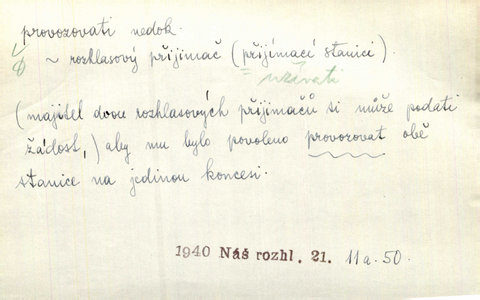 provozovati nedok.
~ rozhlasový přijimač (přijímací stanici).
= užívati
(majitel dvou rozhlasových přijimačů si může podati
žádost,) aby mu bylo povoleno provozovat obě
stanice na jedinou koncesi.
1940 Náš rozhl. 21. 11a. 50.